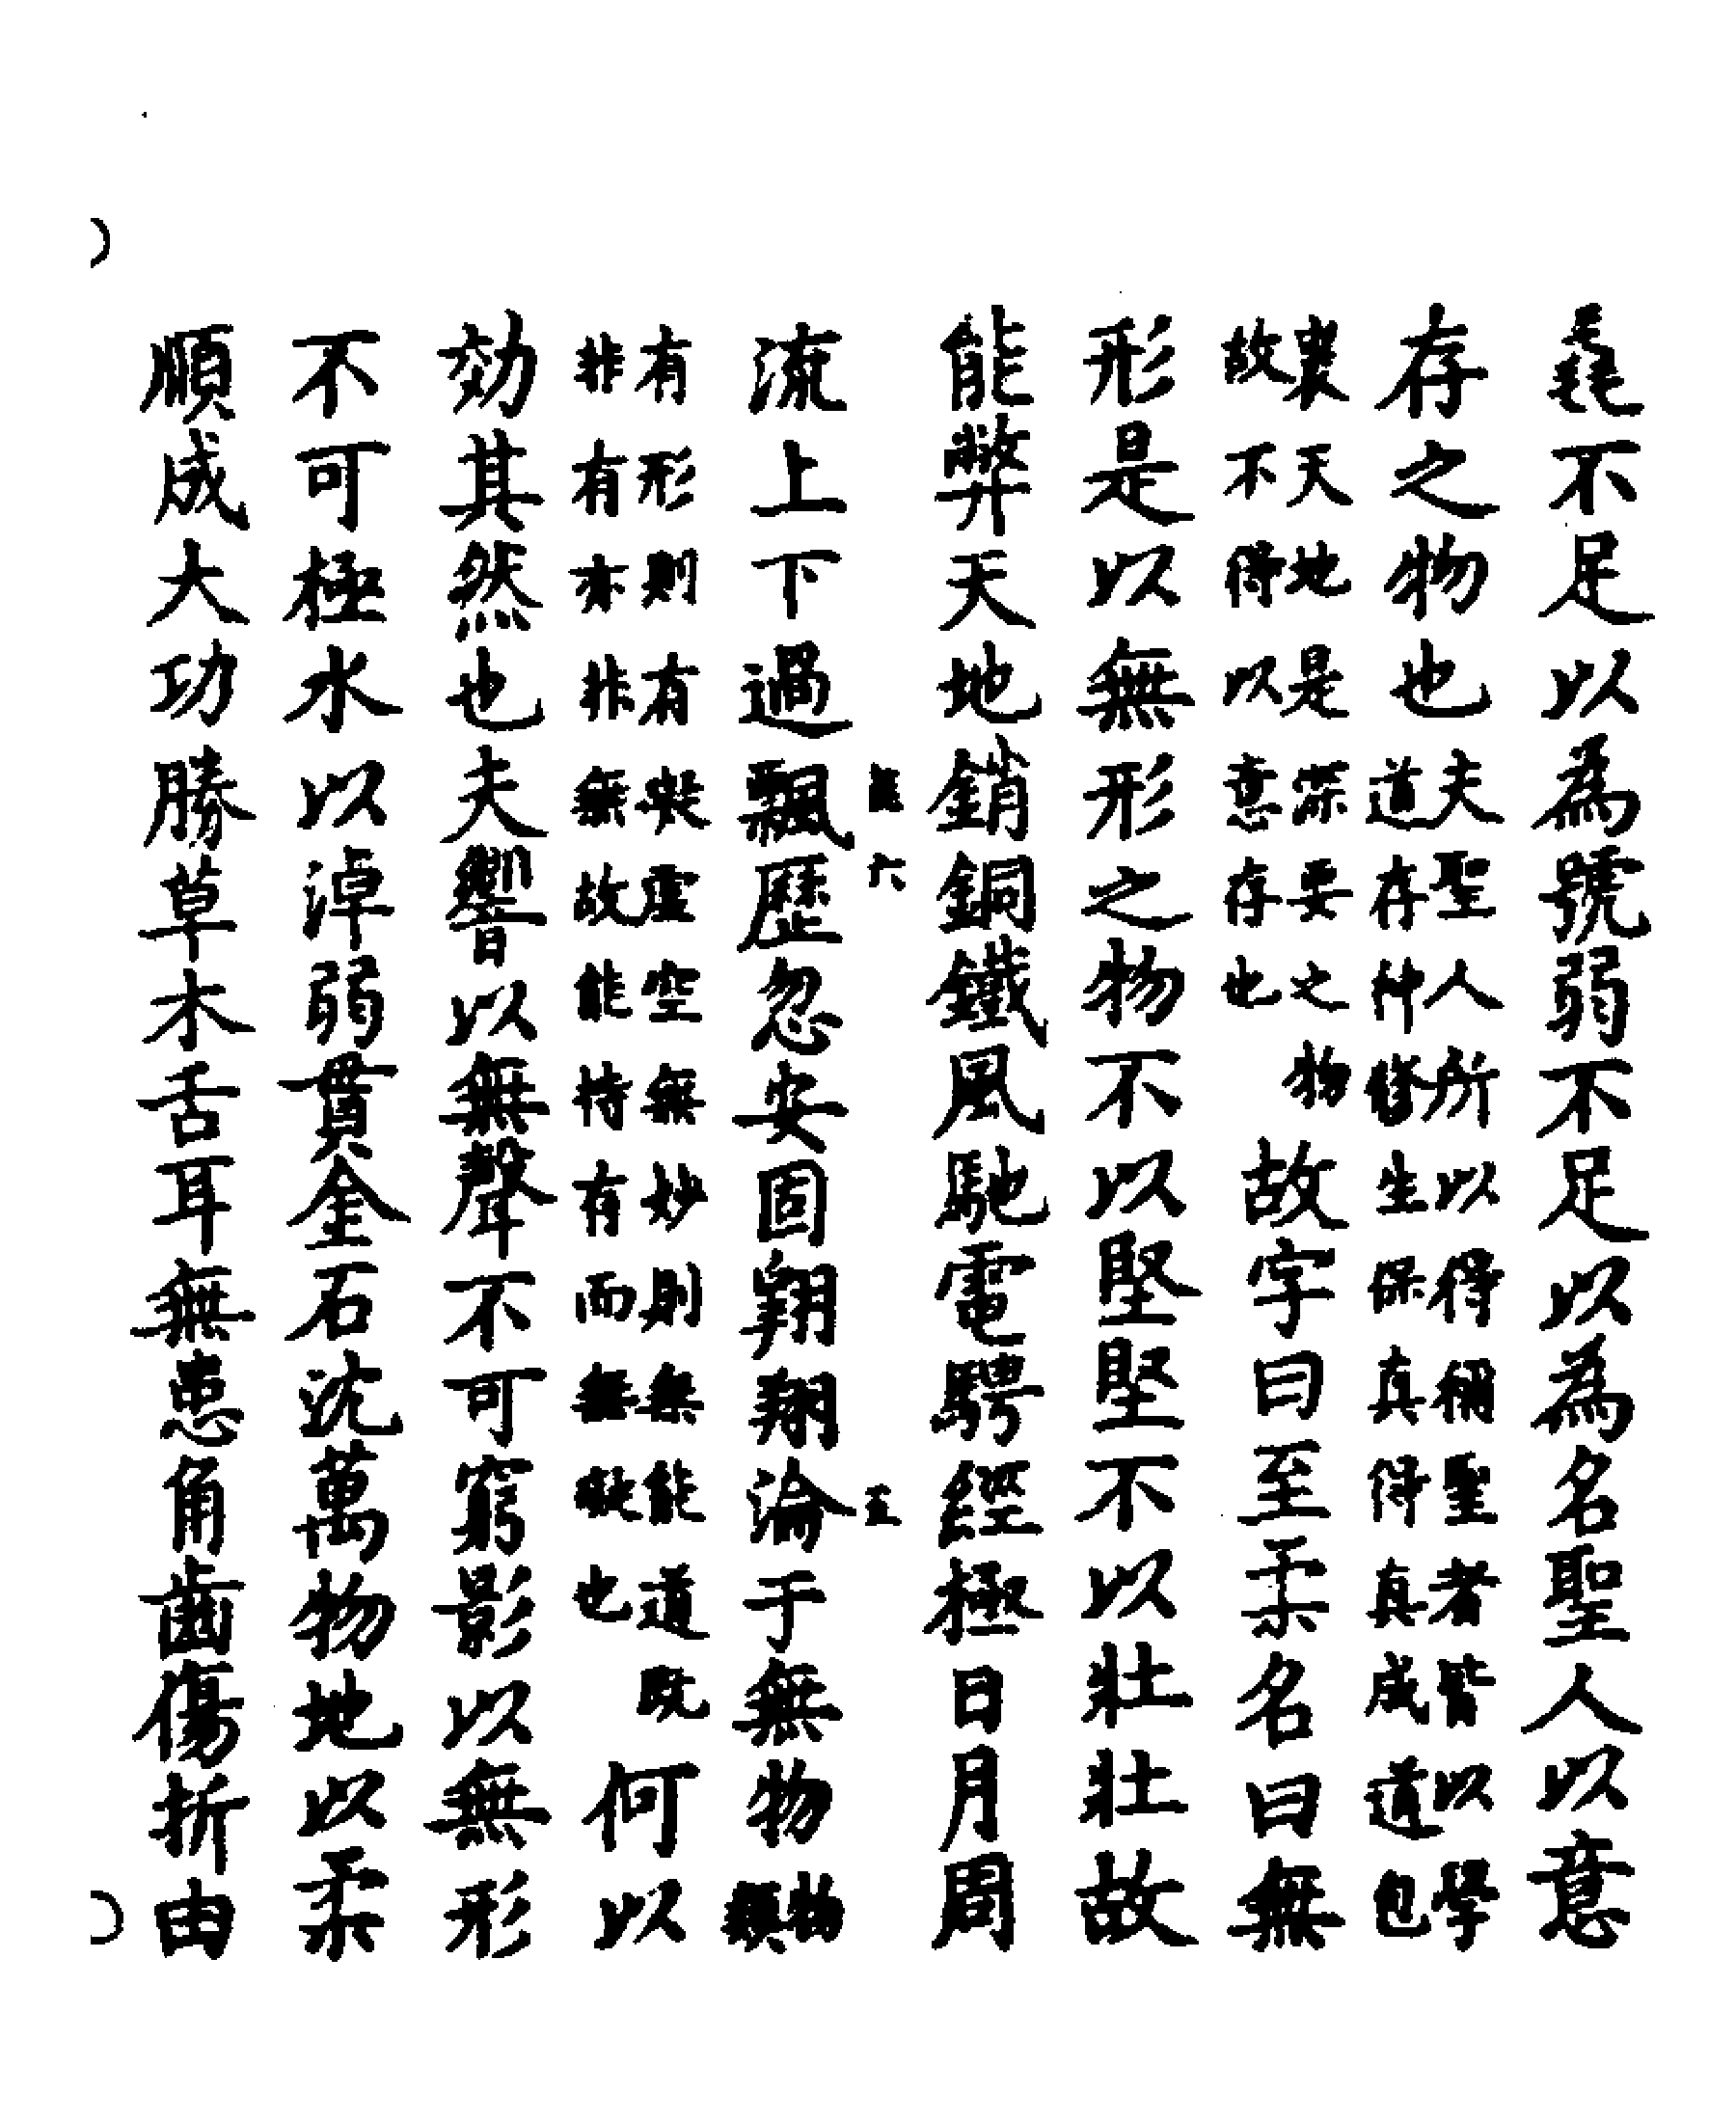 毳不足以為號弱不足以為名聖人以意
存之物也夫聖人所以得稱聖者皆以學道存神修生保真得真成道包
裹天地是深要之物故不得以意存也故字曰至柔名曰無
形是以無形之物不以堅堅不以壯壯故
能弊天地銷銅鐵風馳電騁經極日月周
能六 五
流上下過飄歷忽安固翱翔淪于無物物類
有形則有礙虛空無妙則無能道既非有亦非無故能待有而無礙也何以
効其然也夫響以無聲不可窮影以無形
不可極水以淖弱貫金石沈萬物地以柔
順成大功勝草木舌耳無患角齒傷折由